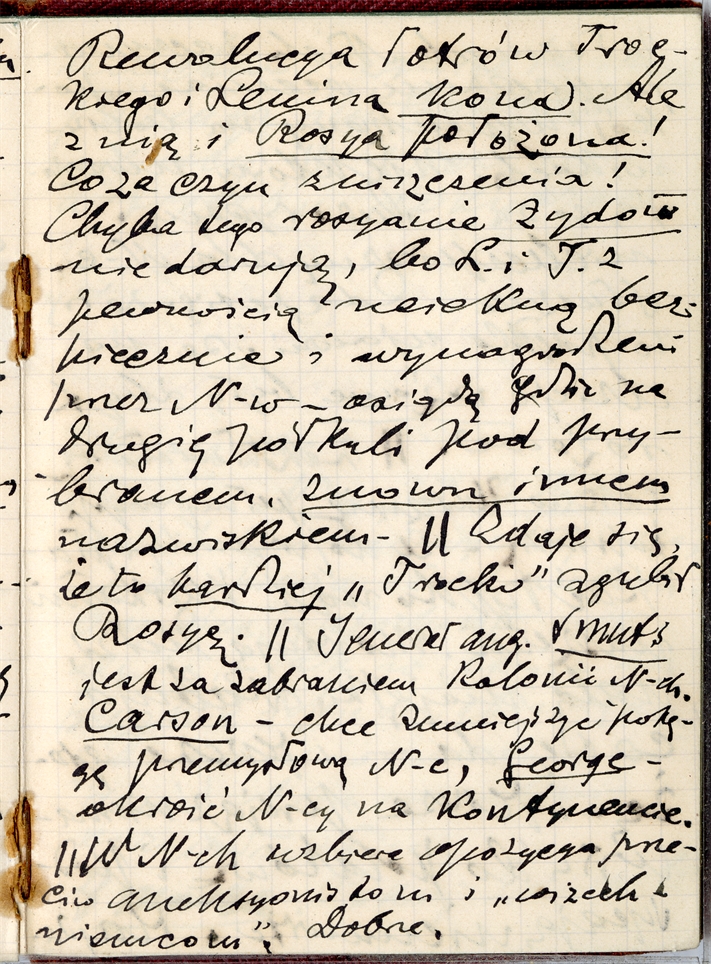 Rewolucya łotrów Troc-
kiego i Lenina kona. Ale
z nią i Rosya położona!
Co za czyn zniszczenia!
Chyba tego rosyanie Żydom
nie darują, bo L. i T. z
pewnością uciekną bez-
piecznie i wynagrodzeni
przez N-w – osiądą gdzie na
drugiej półkuli pod przy-
branem, znowu innem
nazwiskiem – || Zdaje się,
że to bardziej „Trocki" zgubił
Rosyę. || Jenerał ang. Smuts
jest za zabraniem Kolonii N-ch.
Carson – chce zmniejszyć potę-
gę przemysłową N-c, George –
okroić N-cy na Kontynencie.
|| W N-ch wzbiera opozycya prze-
ciw aneksyonistom i „wszech-
niemcom". Dobrze.